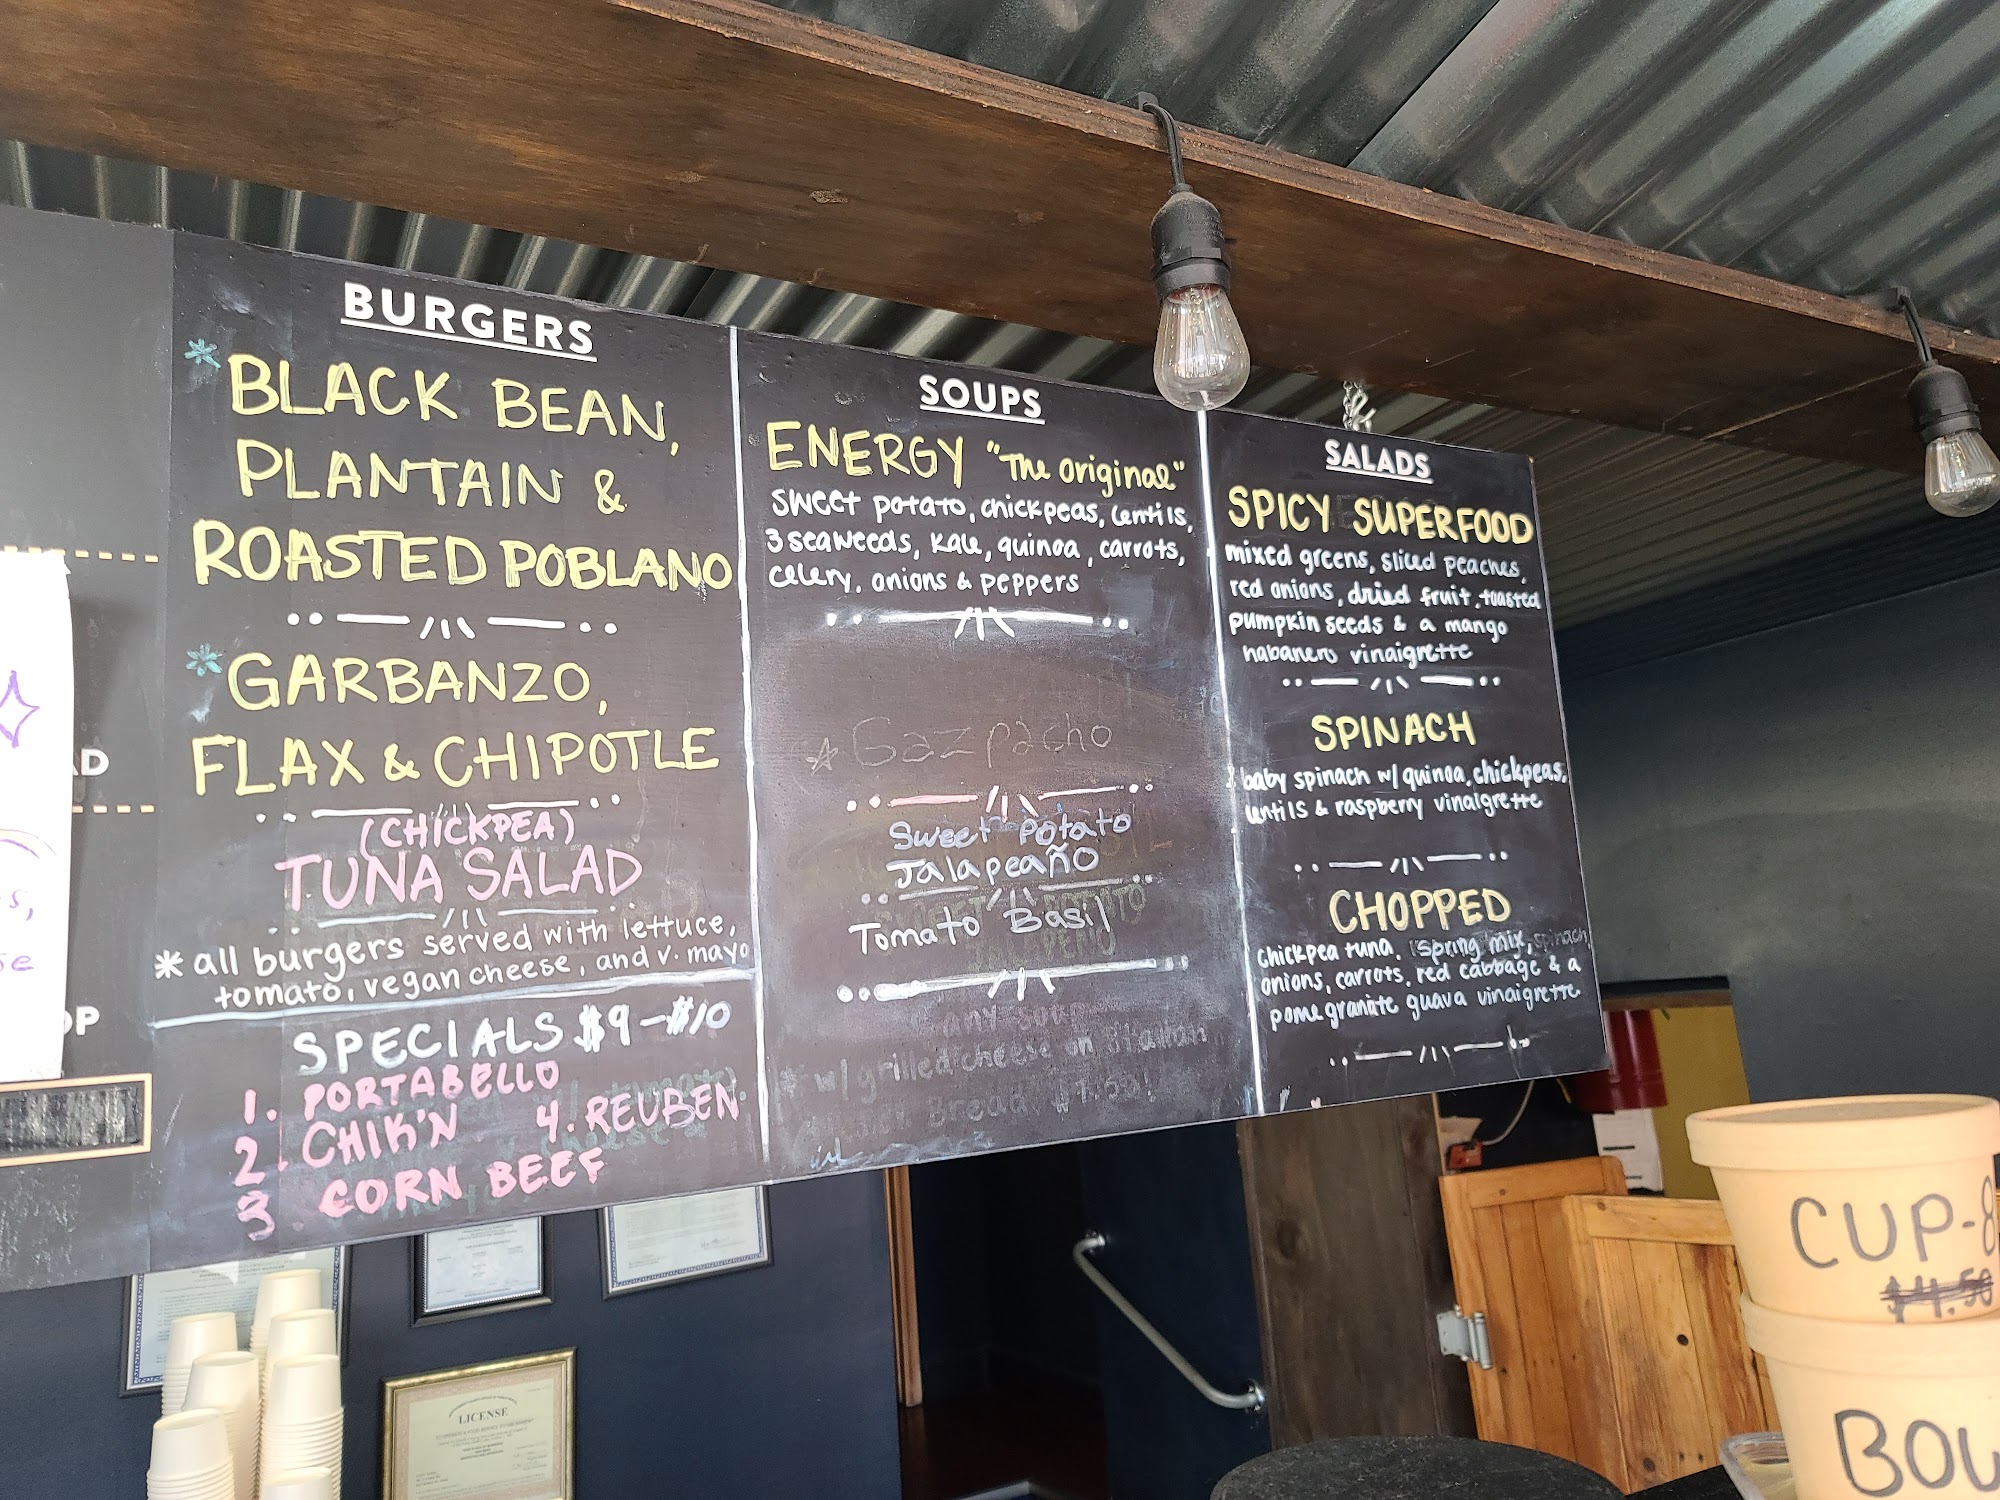 BURGERS
* BLACK BEAN,
PLANTAIN &
ROASTED POBLANO
* GARBANZO,
FLAX & CHIPOTLE
(CHICKPEA)
TUNA SALAD
* all burgers served with lettuce,
tomato, vegan cheese, and v. mayo
SPECIALS $9-$10
1. PORTABELLO
2. CHIK'N 4. REUBEN
3 CORN BEEF
SOUPS
ENERGY "The Original"
sweet potato, chickpeas, lentils,
3 seaweeds, kale, quinoa, carrots,
celery, onions & peppers
* Gazpacho
Sweet Potato
Jalapeaño
Tomato Basil
any soup
* w/ grilled cheese on
SALADS
SPICY SUPERFOOD
mixed greens, sliced peaches,
red onions, dried fruit, toasted
pumpkin seeds & a mango
habanero vinaigrette
SPINACH
baby spinach w/ quinoa, chickpeas,
lentils & raspberry vinaigrette
CHOPPED
chickpea tuna, spring mix, spinach,
onions, carrots, red cabbage & a
pomegranate guava vinaigrette
AD
OP
LICENSE
CUP-8
$4.50
BOW